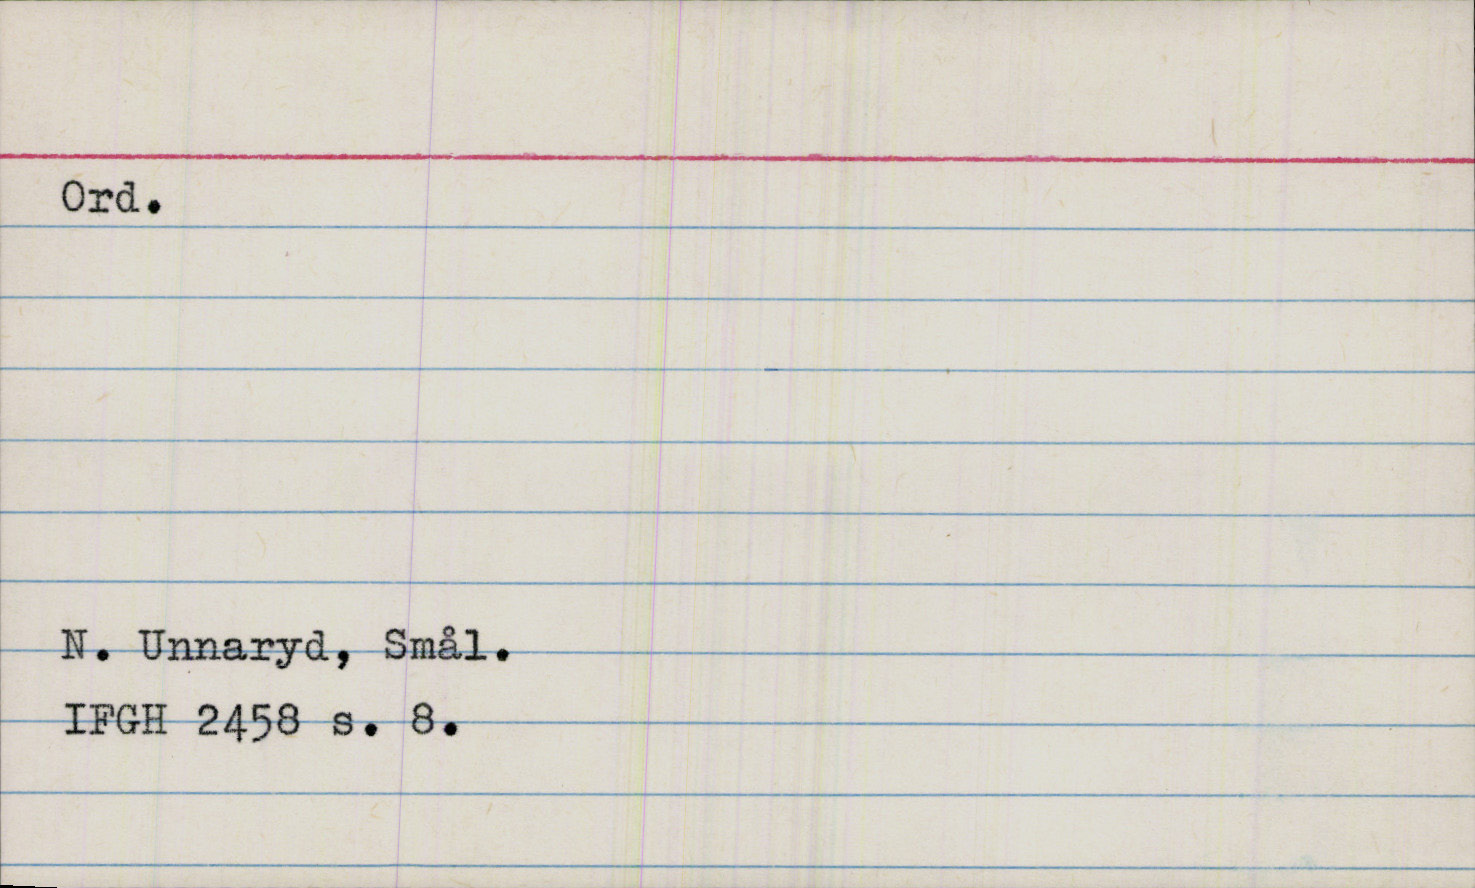 Ord.
N. Unnaryd, Smål.
IFGH 2458 s. 8.